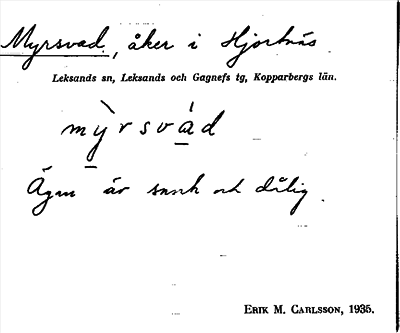 Myrsvad, åker i Hjortnäs.
Leksands sn, Leksands och Gagnefs tg, Kopparbergs län.
mỳrsvád
Ägan är snmk och dålig.
ERIK M. CARLSSON, 1935.